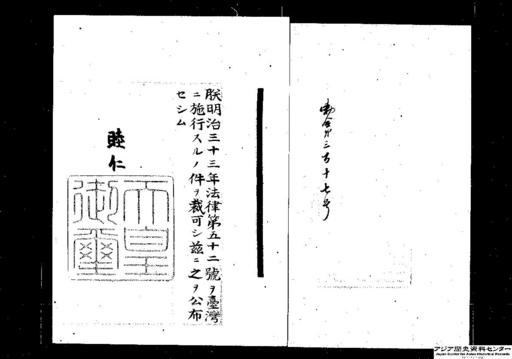 勅令第三百十七号
朕明治三十三年法律第五十二號ヲ臺灣
ニ施行スルノ件ヲ裁可シ茲ニ之ヲ公布
セシム
睦仁
天皇
御璽
アジア歴史資料センター
Japan Center for Asian Historical Records